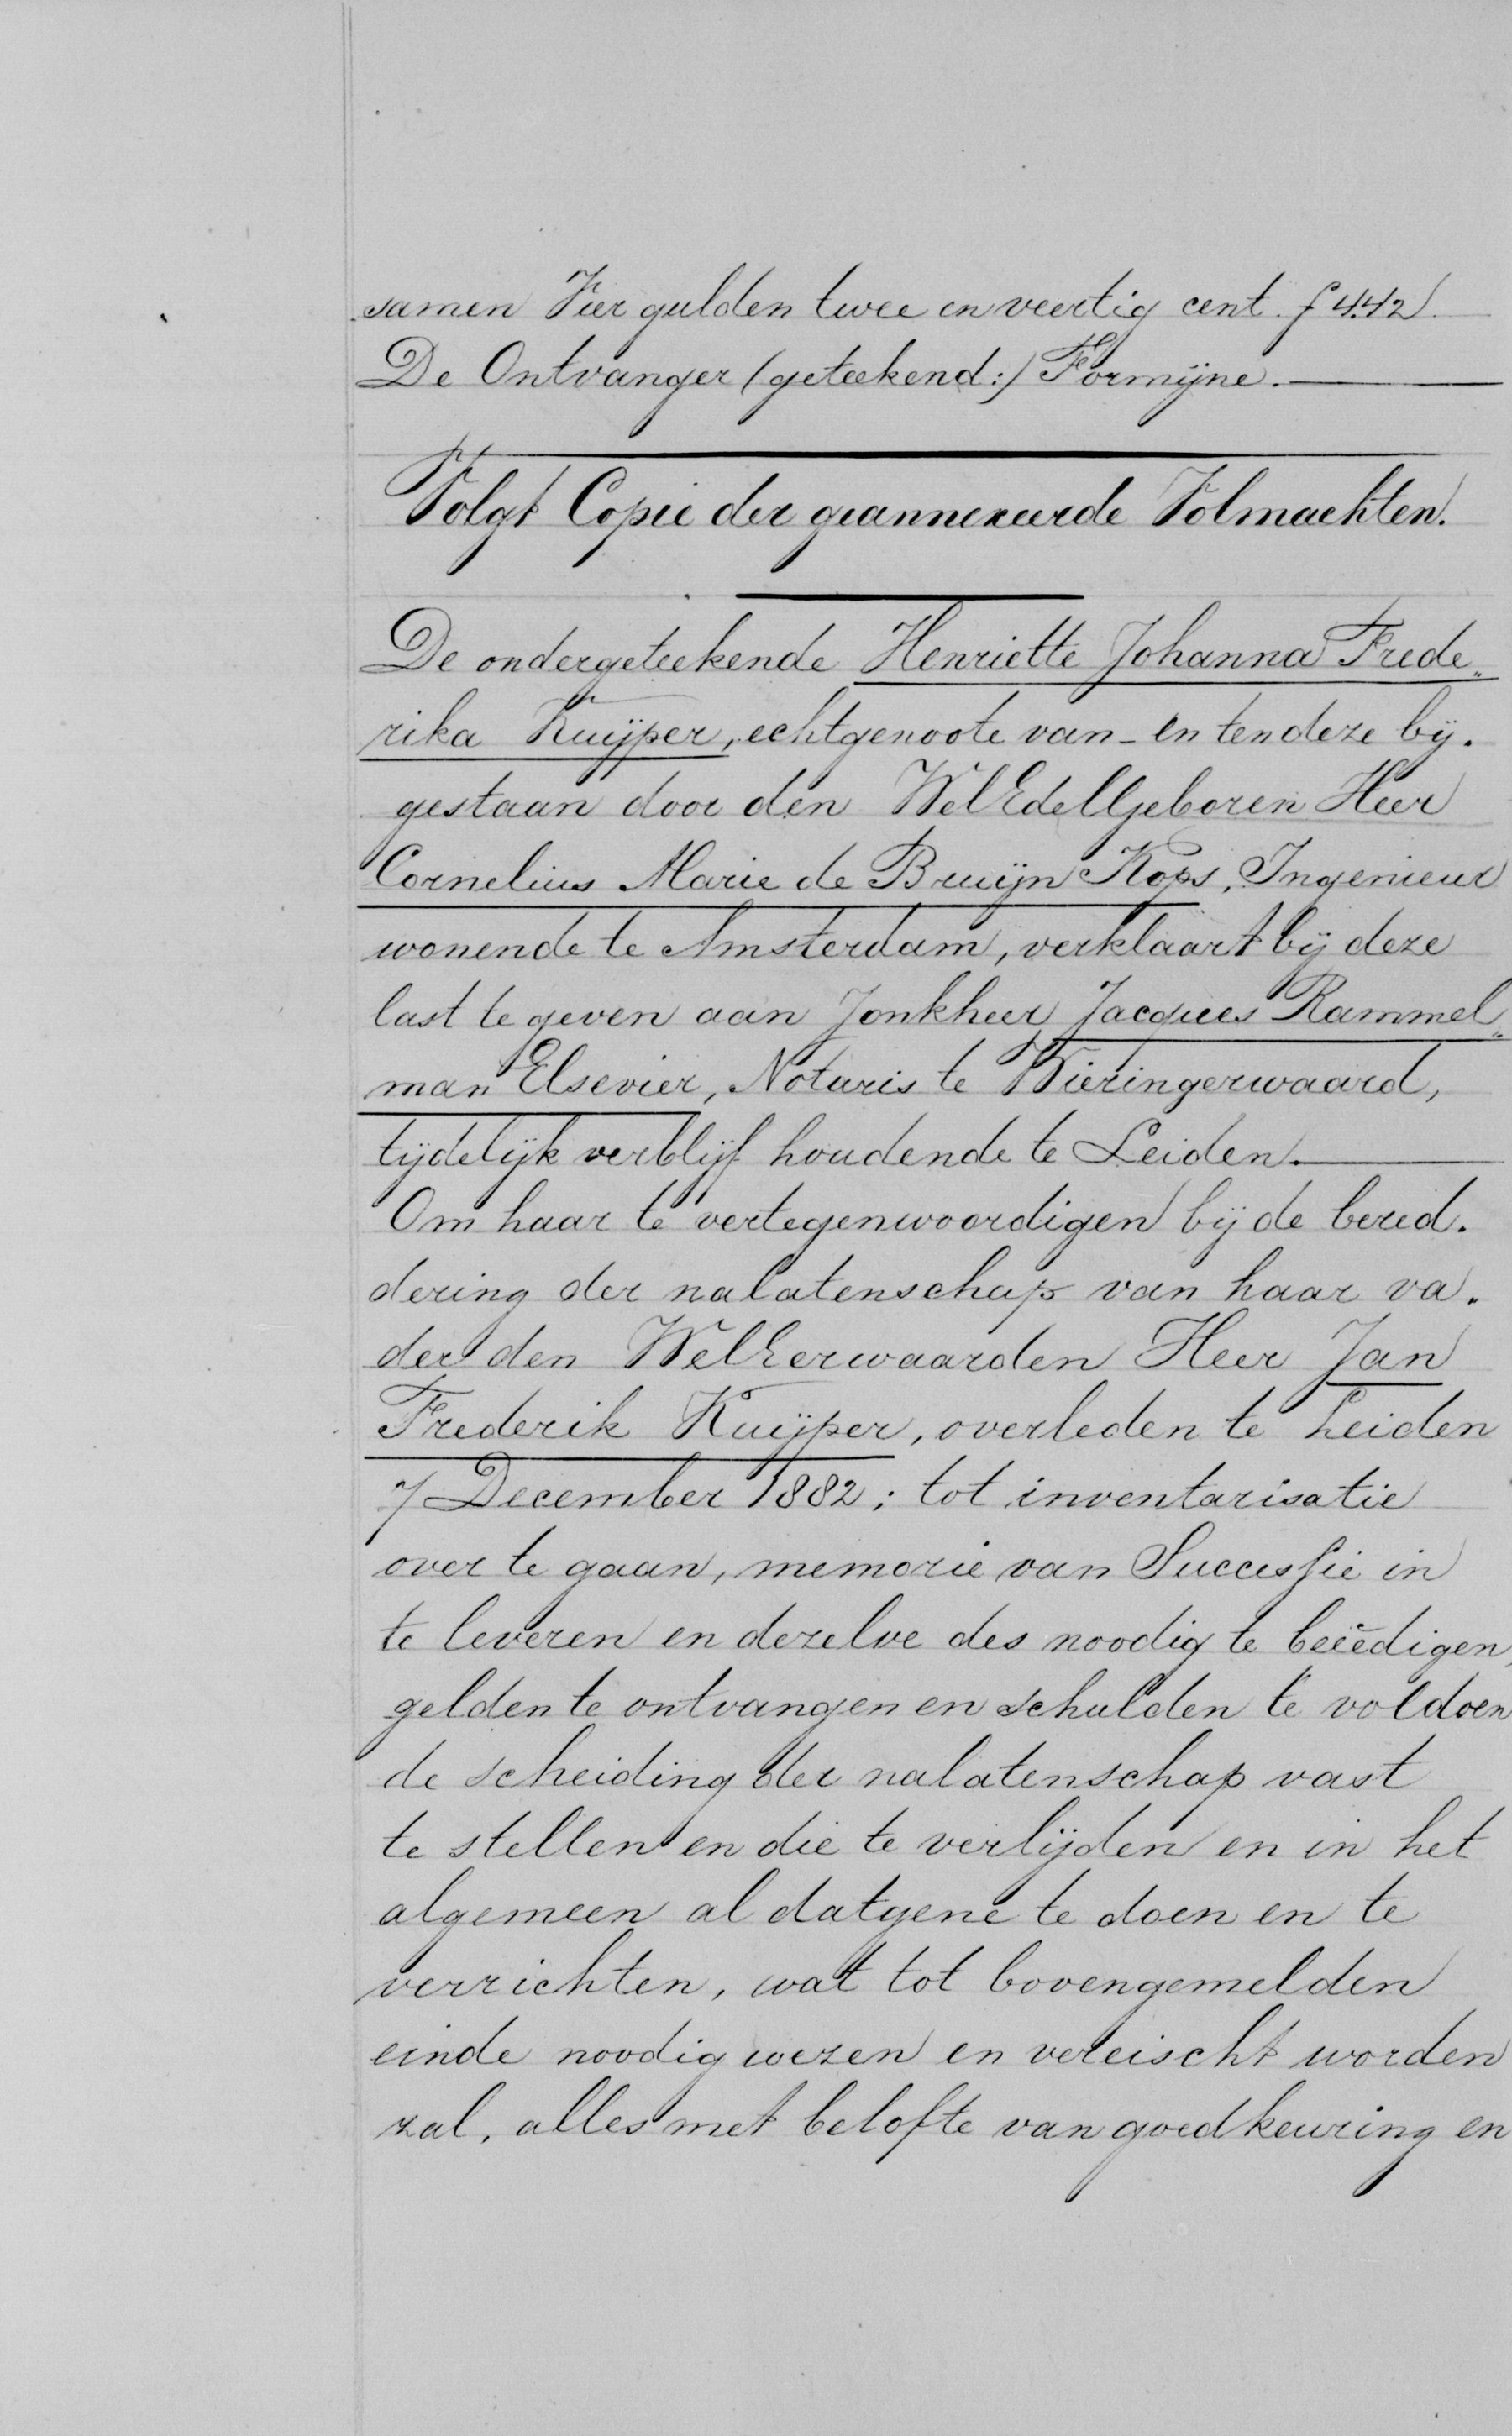 samen Vier gulden twee en veertig cent. f 4.42.
De Ontvanger (geteekend:) Formijne.
Volgt Copie der geannexeerde Volmachten.
De ondergeteekende Henriette Johanna Frede„
rika Kuijper, echtgenoote van - en ten deze bij.
gestaan door den WelEdelGeboren Heer
Cornelius Marie de Bruijn Kops, Ingenieur
wonende te Amsterdam, verklaart bij deze
last te geven aan Jonkheer Jacques Rammel„
man Elsevier, Notaris te Wieringerwaard,
tijdelijk verblijf houdende te Leiden.
Om haar te vertegenwoordigen bij de bered.
dering der nalatenschap van haar va.
der den WelEerwaarden Heer Jan
Frederik Kuijper, overleden te Leiden
7 December 1882; tot inventarisatie
over te gaan, memorie van Successie in
te leveren en dezelve des noodig te beëedigen,
gelden te ontvangen en schulden te voldoen
de scheiding der nalatenschap vast
te stellen en die te verlijden en in het
algemeen al datgene te doen en te
verrichten, wat tot bovengemelden
einde noodig wezen en vereischt worden
zal, alles met belofte van goedkeuring en